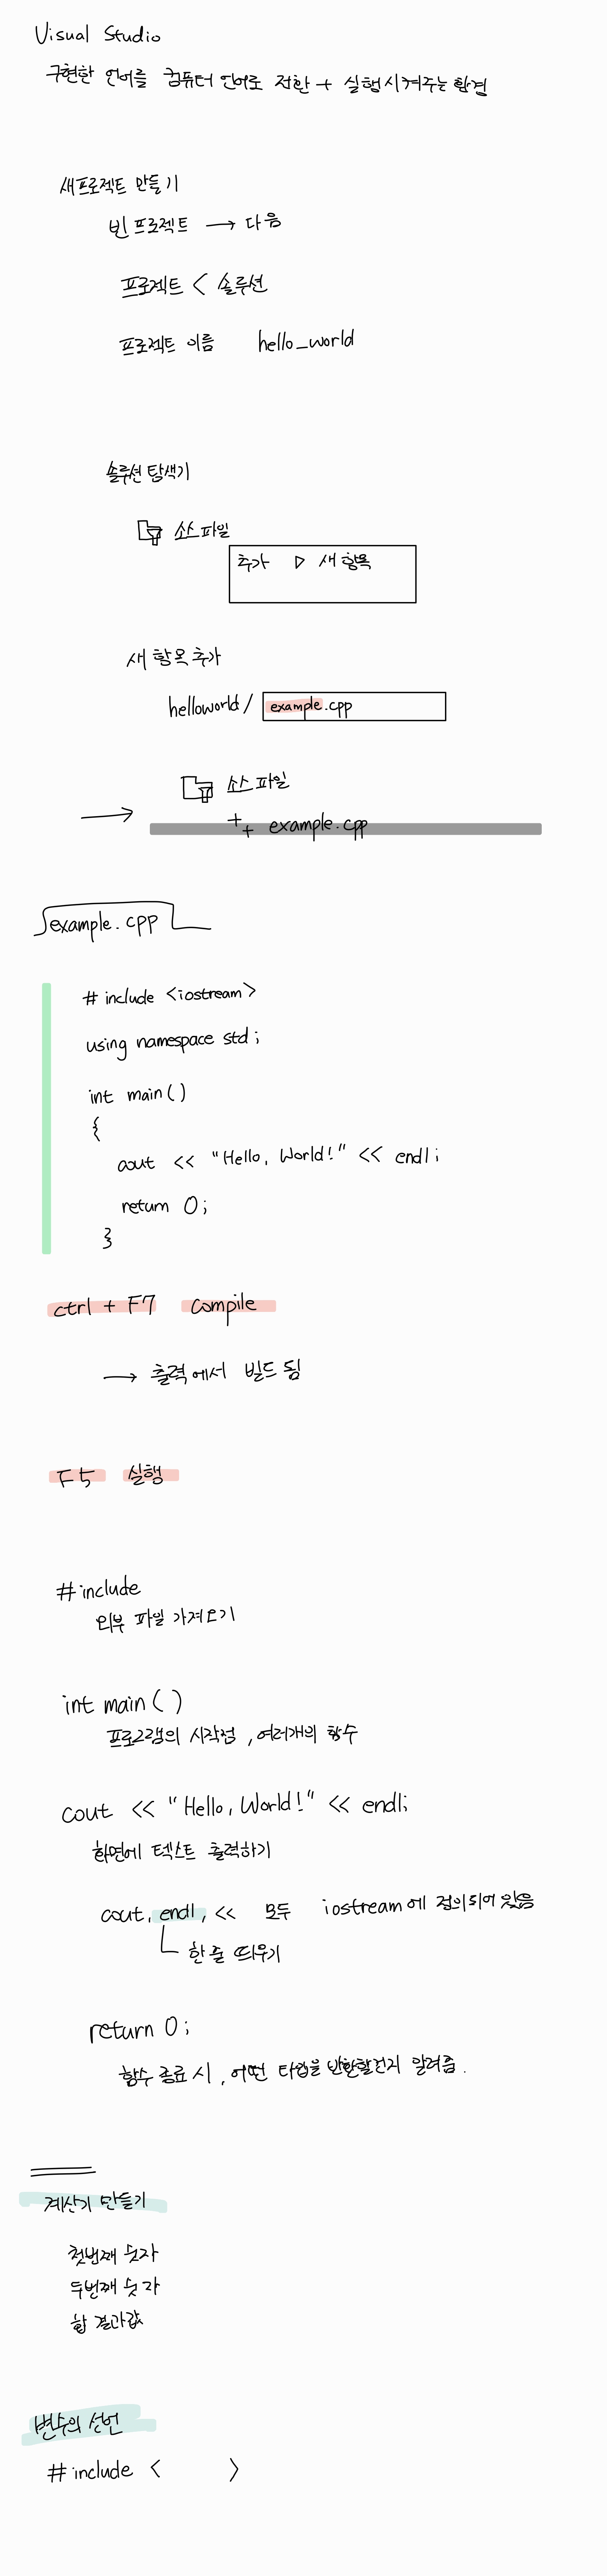 Visual Studio
구현한 언어를 컴퓨터 언어로 전환 + 실행시켜주는 환경
새프로젝트 만들기
빈 프로젝트 → 다음
프로젝트 < 솔루션
프로젝트 이름 hello_world
솔루션 탐색기
소스 파일
추가 ▷ 새 항목
새 항목 추가
helloworld/ example.cpp
→ 소스 파일
++ example.cpp
example.cpp
# include <iostream>
using namespace std;
int main()
{
cout << "Hello, World!" << endl;
return 0;
}
ctrl + F7 compile
→ 출력에서 빌드 됨
F5 실행
#include
외부 파일 가져오기
int main()
프로그램의 시작점, 여러개의 함수
cout << "Hello, World!" << endl;
화면에 텍스트 출력하기
cout, endl, << 모두 iostream에 정의되어 있음
한 줄 띄우기
return 0;
함수 종료 시, 어떤 타입을 반환할건지 알려줌.
계산기 만들기
첫번째 숫자
두번째 숫자
합 결과값
변수의 선언
#include < >